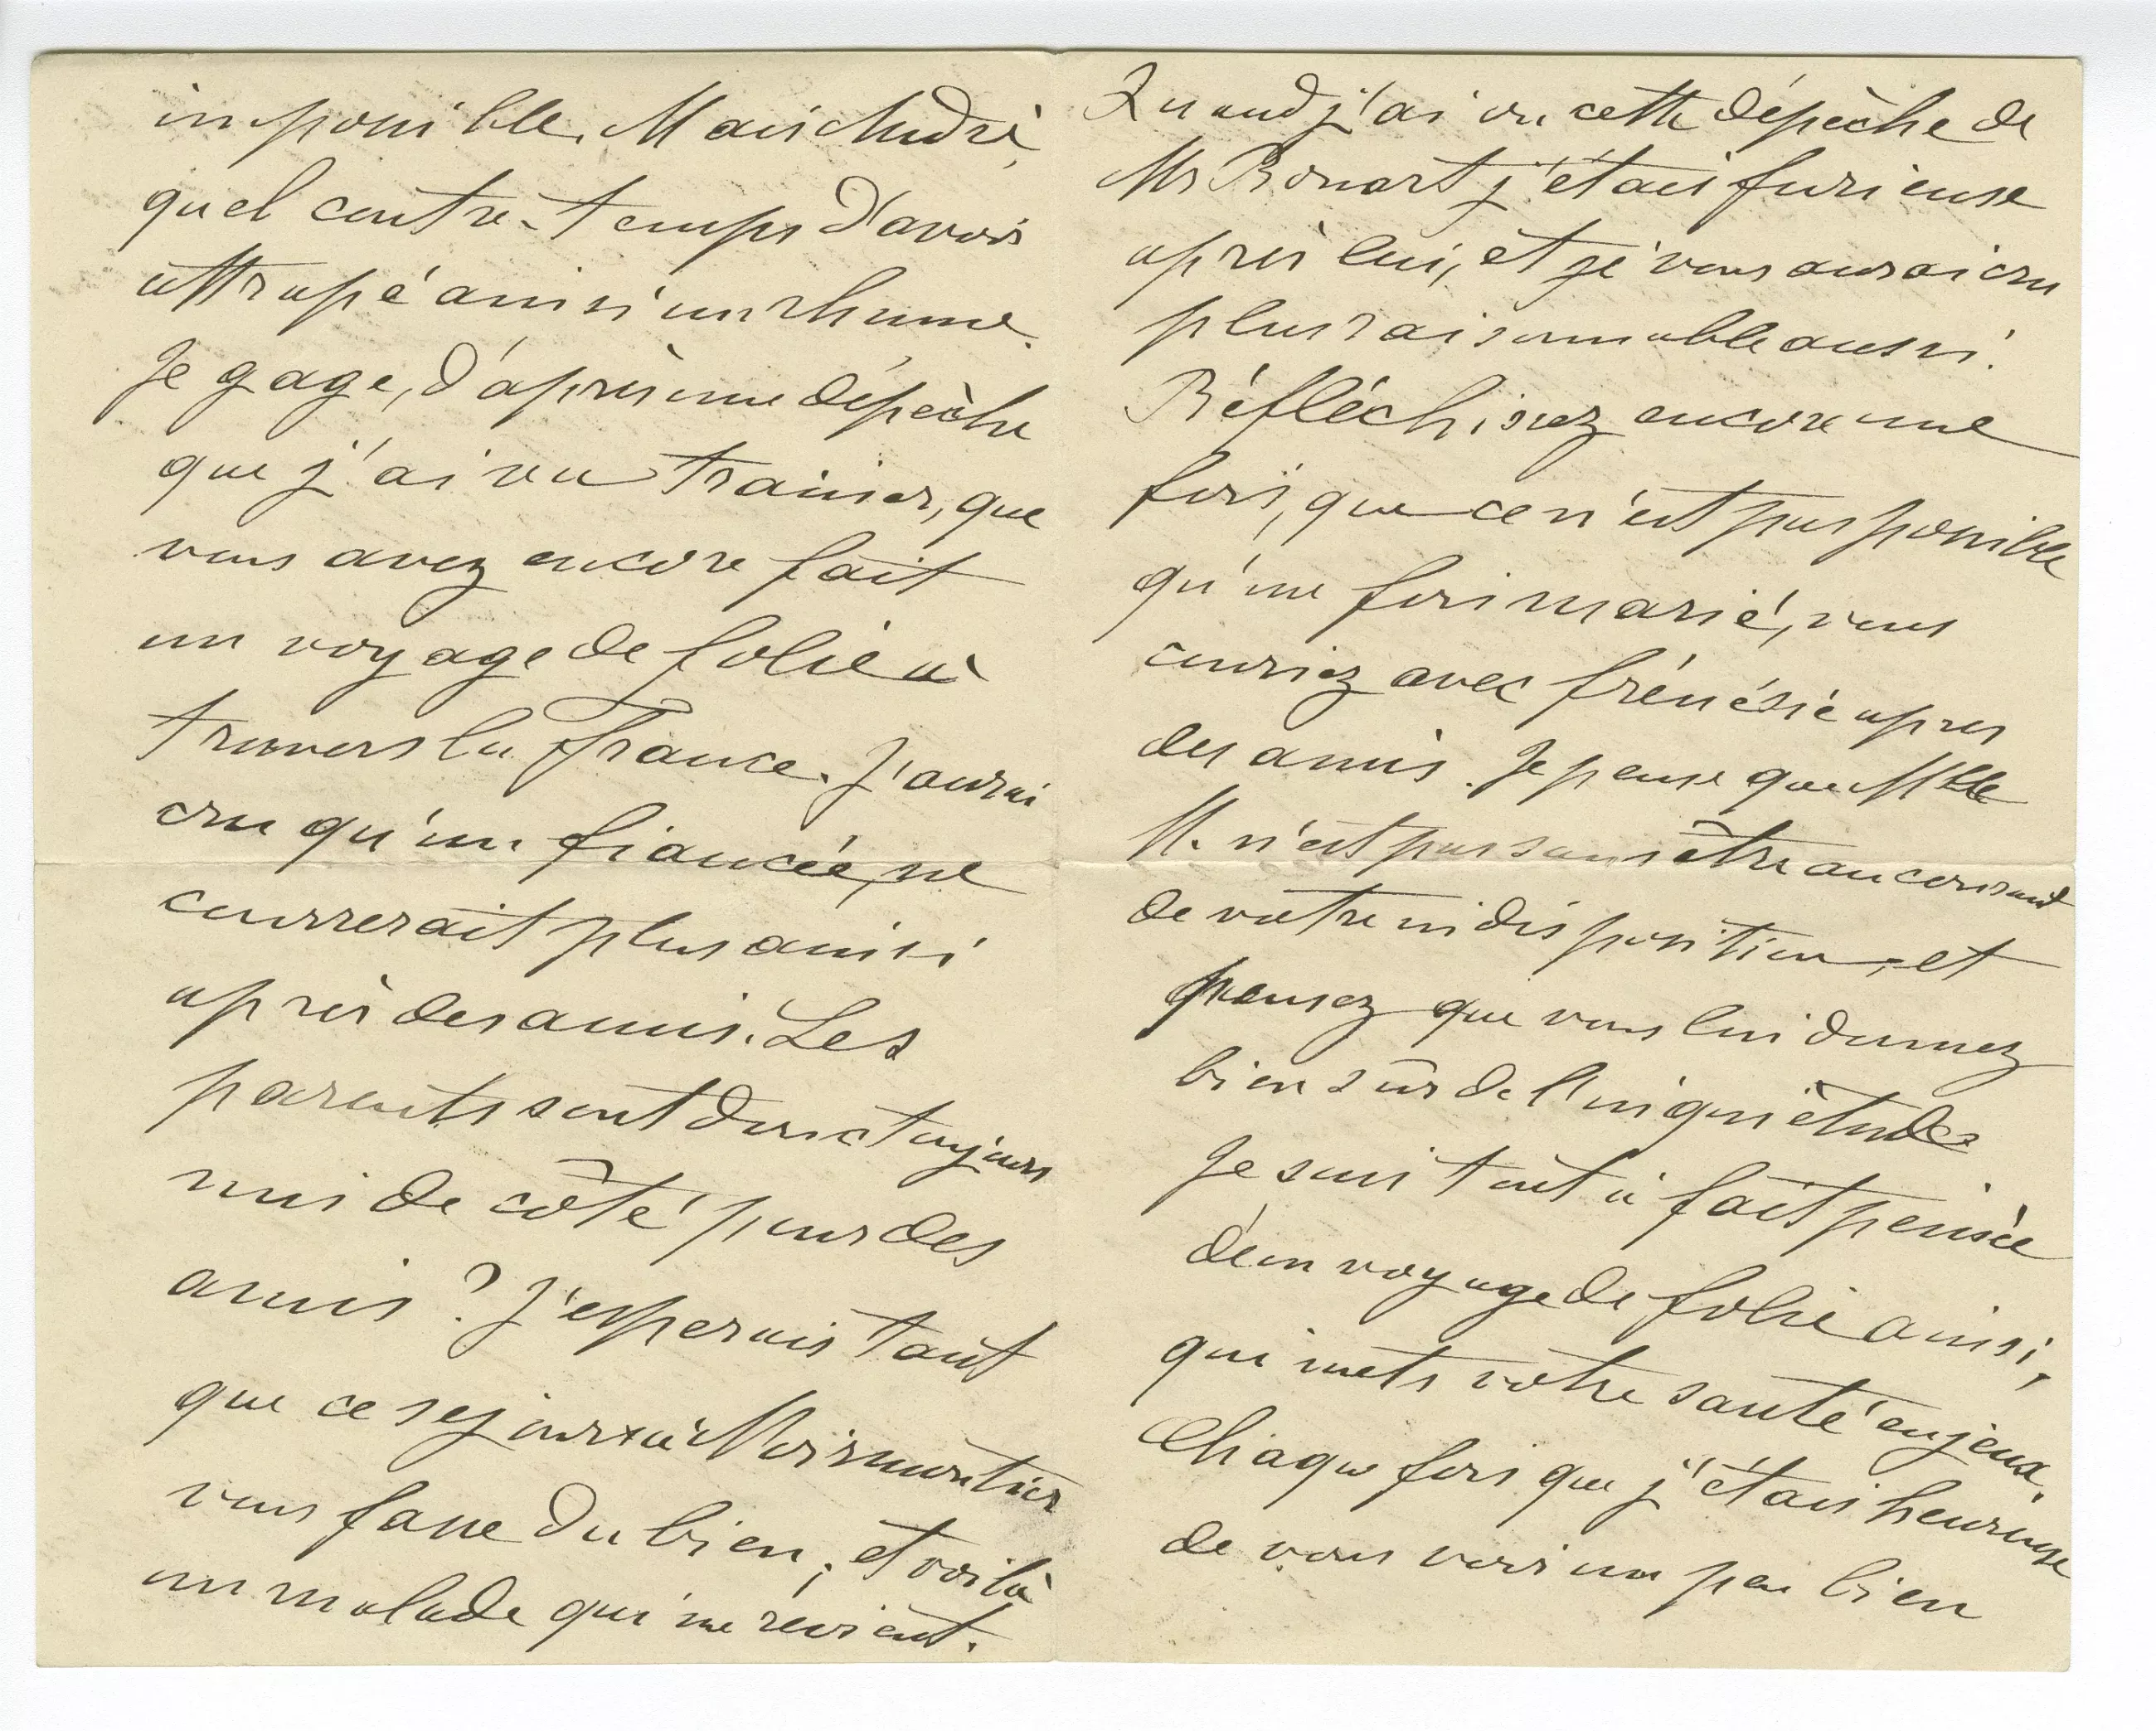 impossible. Mais André,
quel contre-temps d'avoir
attrapé ainsi un rhume.
Je gage, d'après une dépêche
que j'ai vu trainer, que
vous avez encore fait
un voyage de folie à
travers la France. J'aurai
cru qu'un fiancée, ne
courrerait plus ainsi
après des amis. Les
parents sont donc toujours
mis de côté pour des
amis ? J'esperais tant
que ce sejour à Noirmoutier
vous fasse du bien ; et voilà
un malade qui me revient.
Quand j'ai vu cette dépèche de
Mr Ronart j'étais furieuse
après lui, et je vous aurai cru
plus raisonnable aussi.
Réfléchissez encore une
fois, que ce n'est pas possible
qu'une fois marié, vous
couriez avec frénésie apres
des amis. Je pense que Mlle
M. n'est pas sans être au courant
de votre indisposition, et
pensez que vous lui donnez
bien sûr de l'inquiètude
Je suis tout à fait peinèe
d'un voyage de folie ainsi,
qui mets votre santé en jeux.
Chaque fois que j'étais heureuse
de vous voir un peu bien